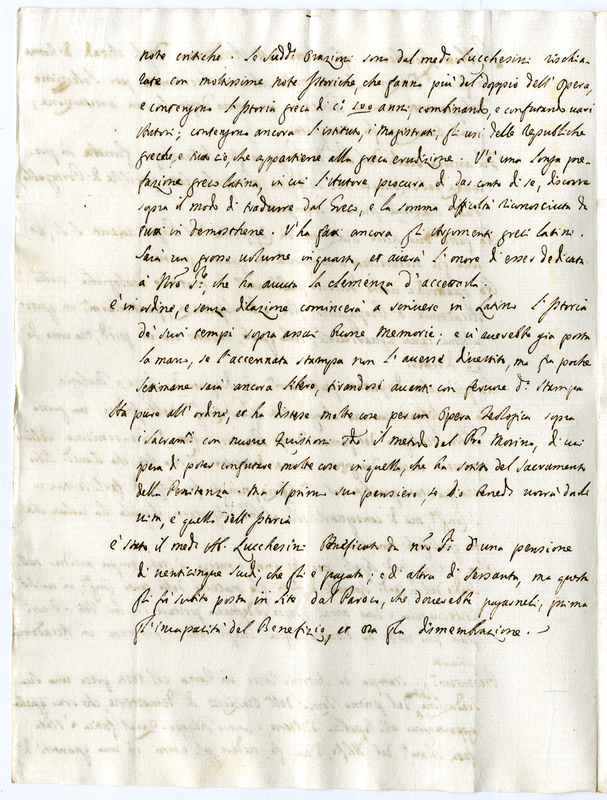 note critiche. Le sudd.e Orazioni sono dal med.o Lucchesini rischia-
rate con moltissime note Istoriche, che fanno più del doppio dell'Opera,
e contengono l'Istoria greca di c.a 100 anni, combinando, e confutando varj
Autori; contengono ancora l'istituti, i Magistrati, gli usi delle Republiche
greche, e tutto ciò, che appartiene alla greca erudizione. V'è una longa pre-
fazione greco latina, in cui l'Autore procura di dar conto di se, discorre
sopra il modo di tradurre dal Greco, e la somma difficultà riconosciuta da
tutti in Demosthene. V'ha fatti ancora gli Argomenti greci latini.
Sarà un grosso volume in quarto, et averà l'onore di esser dedicata
à Nro Sig.re, che ha avuta la clemenza d'accettarla.
è in ordine, e senza dilazione comincerà a scrivere in Latino l'Istoria
de' suoi tempi sopra assai buone Memorie; e ci averebbe già posta
la mano, se l'accennata stampa non l'avesse divertito, ma fra poche
settimane sarà ancora libero, tirandosi avanti con fervore d.a stampa
Ha pure all'ordine, et ha distese molte cose per un Opera Teologica sopra
i Sacram.ti con nuove Quistioni il metodo del Pre Morino, di cui
pensa di poter confutare molte cose in quello, che ha scritto del Sacramento
della Penitenza. Ma il primo suo pensiero, se Dio bened.o vorrà darli
vita, è quello dell'Istoria
è stato il med.o Ab. Lucchesini Beneficato da nro Sig.re d'una pensione
di venticinque scudi, che gli è pagata; e d'altra di sessanta, ma questa
gli fù subito posta in lite dal Paroco, che doverebbe pagarneli, prima
p l'incapacità del Benefizio, et ora p la dismembrazione.